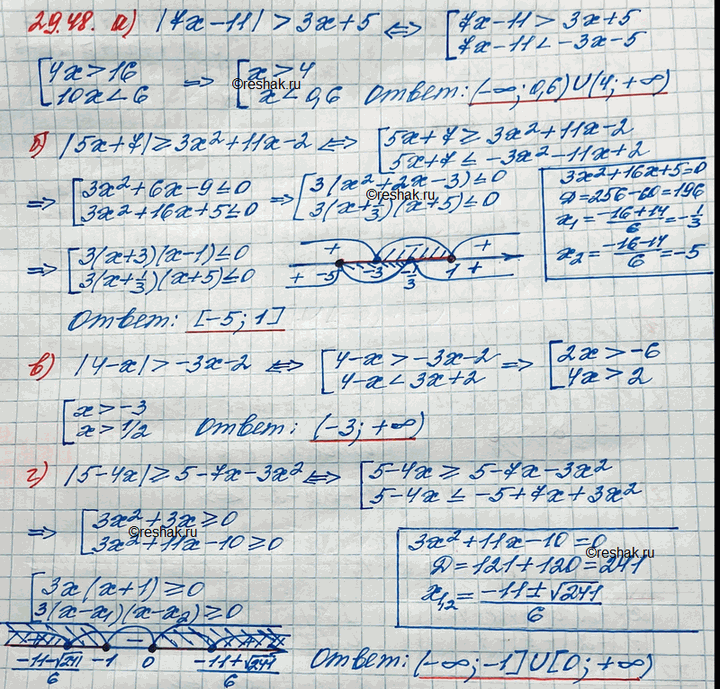 29.48. а) |7x-11| > 3x+5 <=> [7x-11 > 3x+5
7x-11 < -3x-5
[4x > 16
10x < 6 => [x > 4
x < 0,6 Ответ: (-∞; 0,6)∪(4; +∞)
©reshak.ru
б) |5x+7| ≥ 3x²+11x-2 <=> [5x+7 ≥ 3x²+11x-2
5x+7 ≤ -3x²-11x+2
=> [3x²+6x-9 ≤ 0
3x²+16x+5 ≤ 0 => [3(x²+2x-3) ≤ 0
3(x+1/3)(x+5) ≤ 0
©reshak.ru
3x²+16x+5=0
D=256-60=196
x₁ = (-16+14)/6 = -1/3
x₂ = (-16-14)/6 = -5
=> [3(x+3)(x-1) ≤ 0
3(x+1/3)(x+5) ≤ 0
+ +
+ -5 -3 -1/3 1 +
Ответ: [-5; 1]
в) |4-x| > -3x-2 <=> [4-x > -3x-2
4-x < 3x+2 => [2x > -6
4x > 2
[x > -3
x > 1/2 Ответ: (-3; +∞)
г) |5-4x| ≥ 5-7x-3x² <=> [5-4x ≥ 5-7x-3x²
5-4x ≤ -5+7x+3x²
=> [3x²+3x ≥ 0
3x²+11x-10 ≥ 0
©reshak.ru
3x²+11x-10=0
D=121+120=241
x₁,₂ = (-11±√241)/6
©reshak.ru
[3x(x+1) ≥ 0
3(x-x₁)(x-x₂) ≥ 0
(-11-√241)/6 -1 0 (-11+√241)/6
Ответ: (-∞; -1]∪[0; +∞)